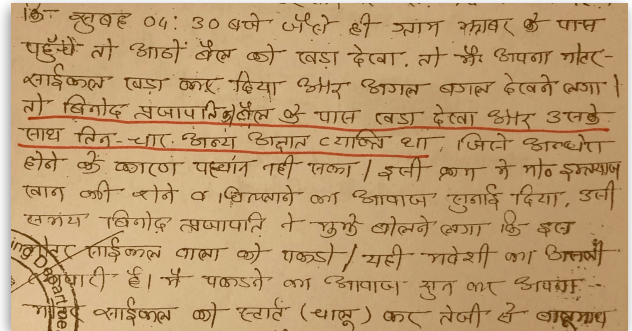 कि सुबह 04:30 बजे जैसे ही ग्राम झाबर के पास
पहुँचे तो आठों बैल को खड़ा देखा, तो मैं अपना मोटर-
साईकल खड़ा कर दिया और अगल बगल देखने लगा।
तो बिनोद प्रजापति को बैल के पास खड़ा देखा और उसके
साथ तिन-चार अन्य अज्ञात व्यक्ति था, जिसे अन्धेरा
होने के कारण पहचान नही सका। इसी क्रम में मो० इम्तयाज
खान की रोने व चिल्लाने का आवाज सुनाई दिया, उसी
समय बिनोद प्रजापति ने मुझे बोलने लगा कि इस
मोटर साईकल वाला को पकड़ो। यही मवेशी का असली
व्यापारी है। मैं पकड़ने का आवाज सुन कर अपना
मोटर साईकल को स्टार्ट (चालु) कर तेजी से बालुमाथ